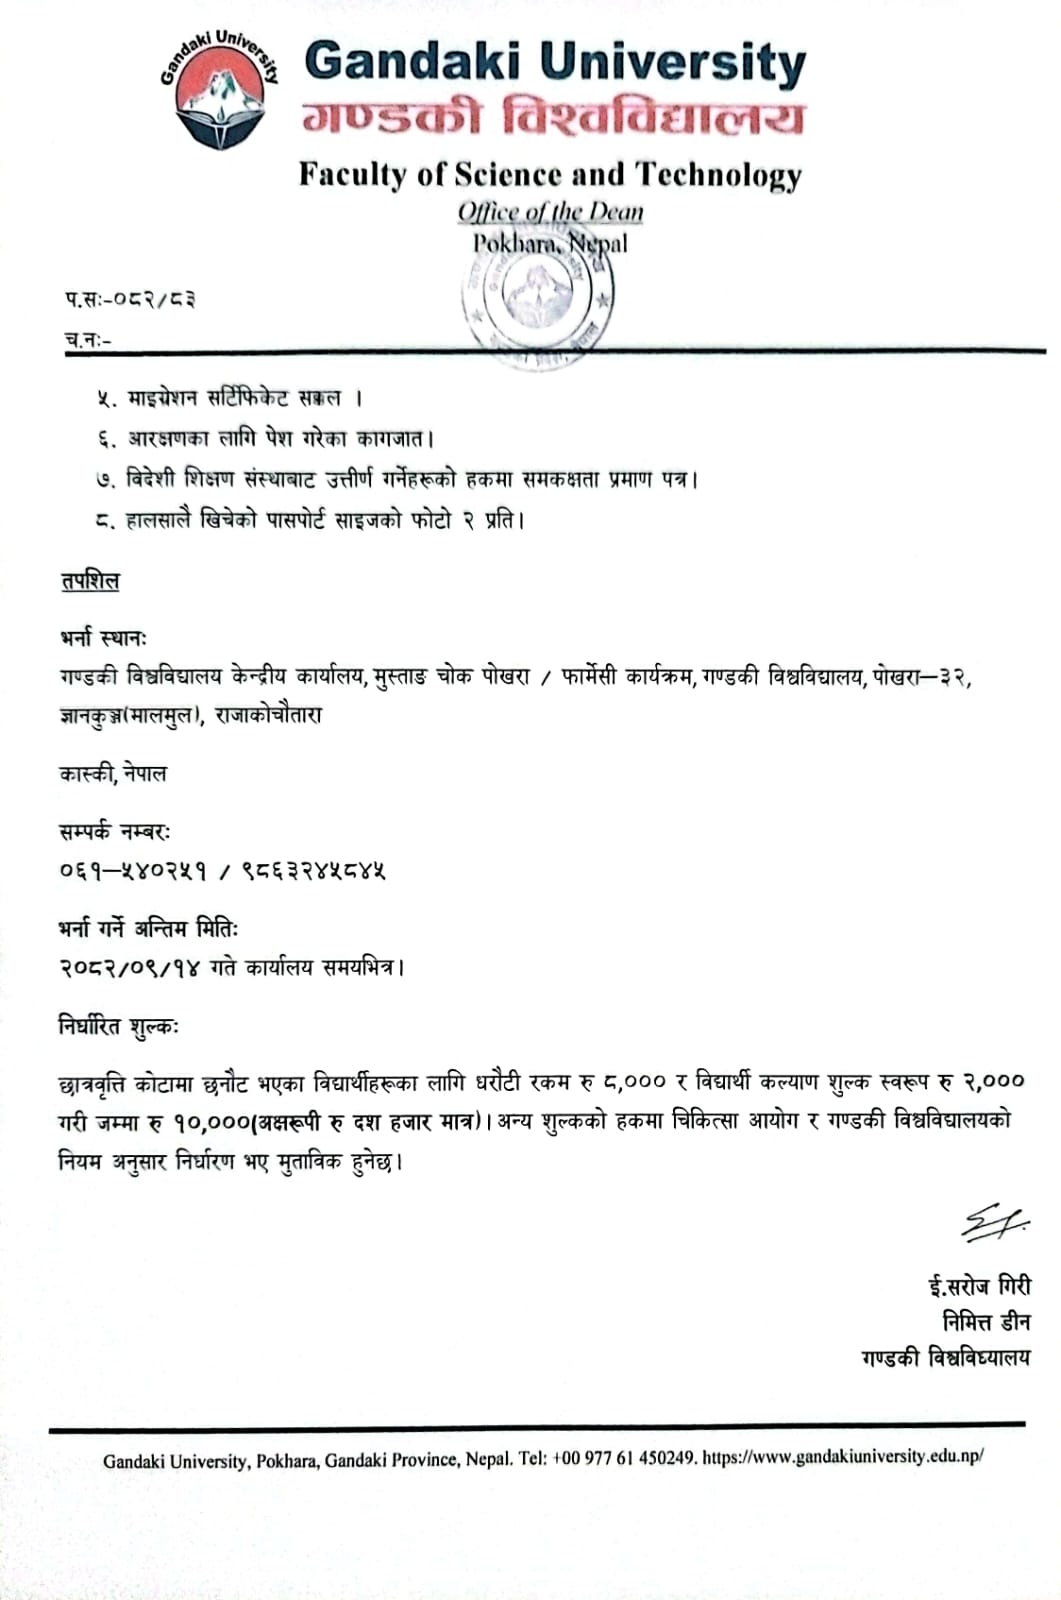 Gandaki University
Gandaki University
गण्डकी विश्वविद्यालय
Faculty of Science and Technology
Office of the Dean
Pokhara, Nepal
प.सः-०८२/८३
च.नः-
५. माइग्रेशन सर्टिफिकेट सक्कल ।
६. आरक्षणका लागि पेश गरेका कागजात।
७. विदेशी शिक्षण संस्थाबाट उत्तीर्ण गर्नेहरूको हकमा समकक्षता प्रमाण पत्र।
८. हालसालै खिचेको पासपोर्ट साइजको फोटो २ प्रति।
तपशिल
भर्ना स्थानः
गण्डकी विश्वविद्यालय केन्द्रीय कार्यालय, मुस्ताङ चोक पोखरा / फार्मेसी कार्यक्रम, गण्डकी विश्वविद्यालय, पोखरा–३२,
ज्ञानकुञ्ज(मालमुल), राजाकोचौतारा
कास्की, नेपाल
सम्पर्क नम्बरः
०६१–५४०२५१ / ९८६३२४५८४५
भर्ना गर्ने अन्तिम मितिः
२०८२/०९/१४ गते कार्यालय समयभित्र।
निर्धारित शुल्कः
छात्रवृत्ति कोटामा छनौट भएका विद्यार्थीहरूका लागि धरौटी रकम रु ८,००० र विद्यार्थी कल्याण शुल्क स्वरूप रु २,०००
गरी जम्मा रु १०,०००(अक्षरूपी रु दश हजार मात्र)। अन्य शुल्कको हकमा चिकित्सा आयोग र गण्डकी विश्वविद्यालयको
नियम अनुसार निर्धारण भए मुताविक हुनेछ।
ई.सरोज गिरी
निमित्त डीन
गण्डकी विश्वविध्यालय
Gandaki University, Pokhara, Gandaki Province, Nepal. Tel: +00 977 61 450249. https://www.gandakiuniversity.edu.np/